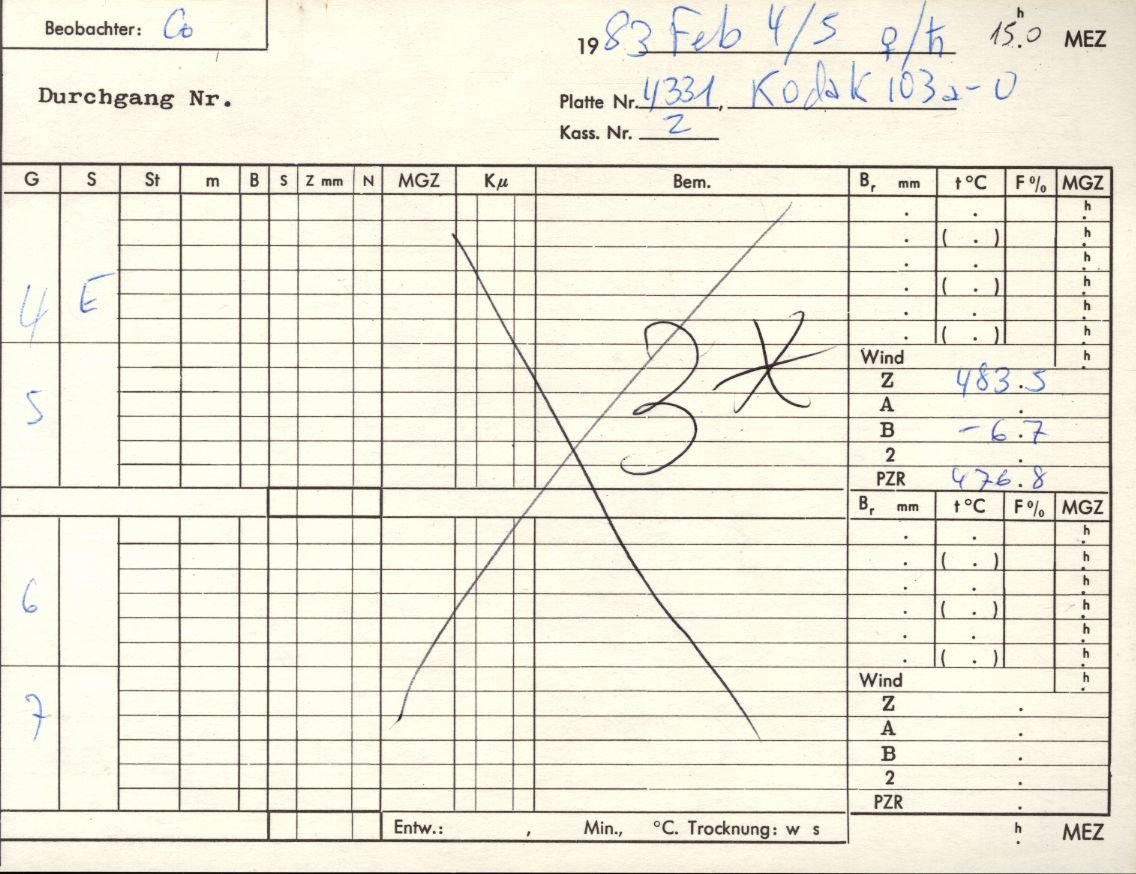 Beobachter: Co
1983 Feb 4/5 ♀/♄ 15.0 h MEZ
Durchgang Nr.
Platte Nr. 4331, Kodak 103a-O
Kass. Nr. 2
G S St m B S Z mm N MGZ Kμ Bem. Br mm t °C F % MGZ
. . h
. ( . ) h
. . h
4 E . ( . ) h
. . h
. ( . ) h
Wind h
3 *
Z 483.5
5 A .
B -6.7
2 .
PZR 476.8
Br mm t °C F % MGZ
. . h
. ( . ) h
. . h
6 . ( . ) h
. . h
. ( . ) h
Wind h
7 Z .
A .
B .
2 .
PZR .
Entw.: , Min., °C. Trocknung: w s h . MEZ